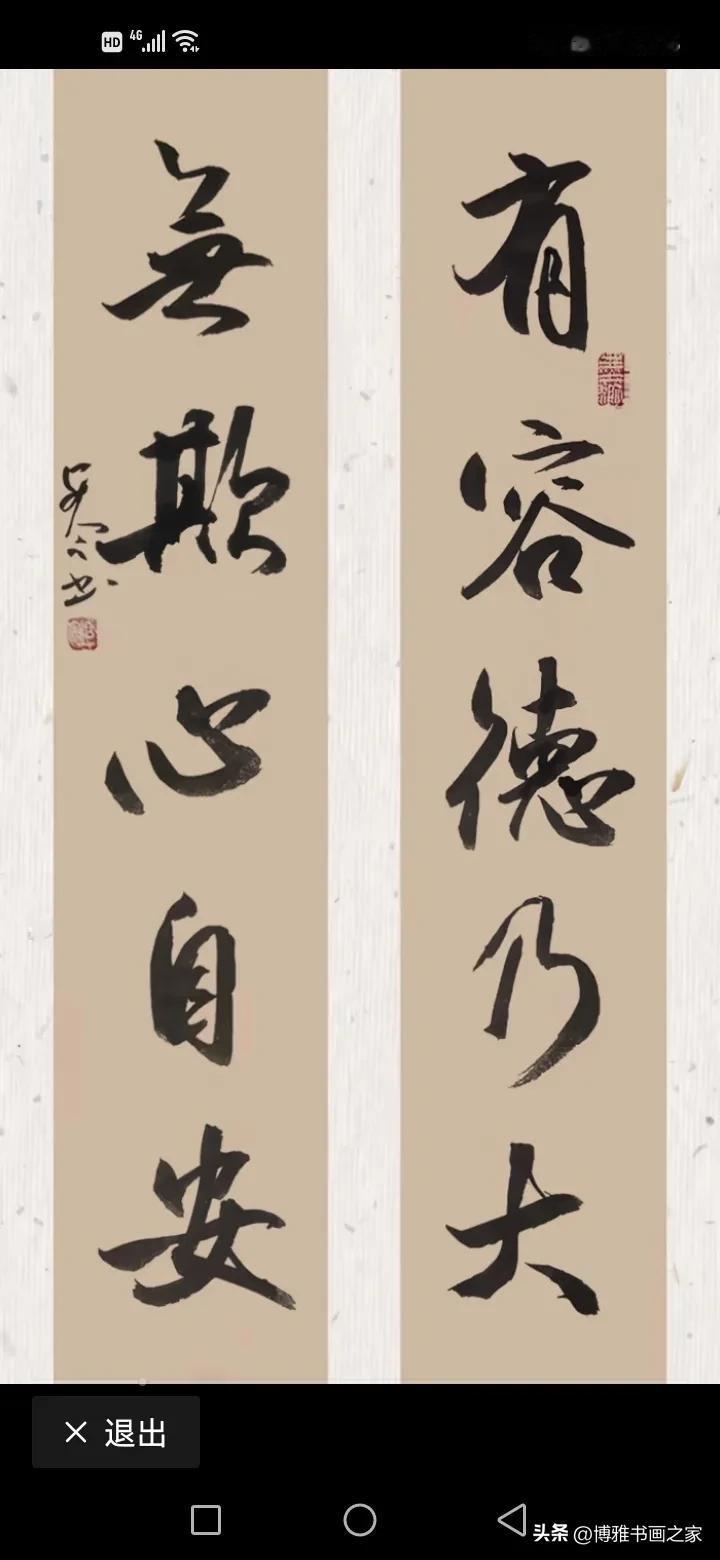 HD 4G
有容德乃大
無欺心自安
退出
头条 @博雅书画之家